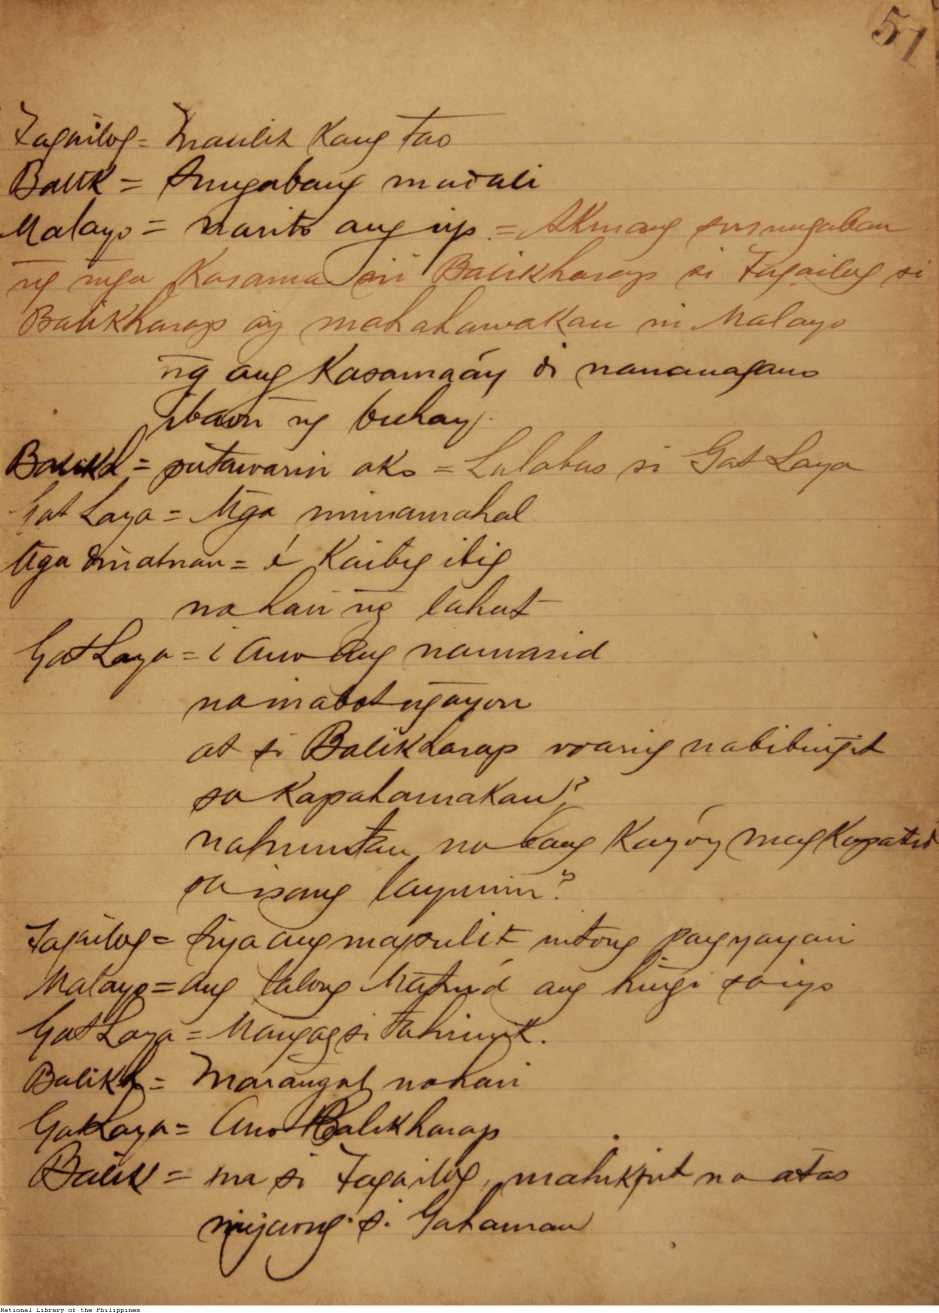 51
Tagailog = Maulit kang tao
Balik = Sungabang madali
Malayo = narito ang = Akmang susungaban
ng mga kasama ni Balikharap si Tagailog si
Balikharap ay mahahawakan ni Malayo
ng ang kasamaáy di nananagano
ibawi ng buhay.
Balikh = patawarin ako = Lalabas si Gat Laya
Gat Laya = Mga minamahal
Mga dinatnan = kaibig ibig
na hari ng lahat
Gat Laya = ¿ Ano ang namasid
na inabot ngayon
at si Balikharap waring nabibingit
sa kapahamakan?
nahuntan na bang kayóy magkapatid
sa isang layunin?
Tagailog = Siya ang mapulit nitong pangyayari
Malayo = ang talong Matuid ang hingi sa iyo
Gat Laya = Mangagsi tahimik.
Balikh = Marangal na hari
Gat Laya = Ano Balikharap
Balik = na si Tagailog, mahikpit na atas
niyaong si Gahaman
National Library of the Philippines